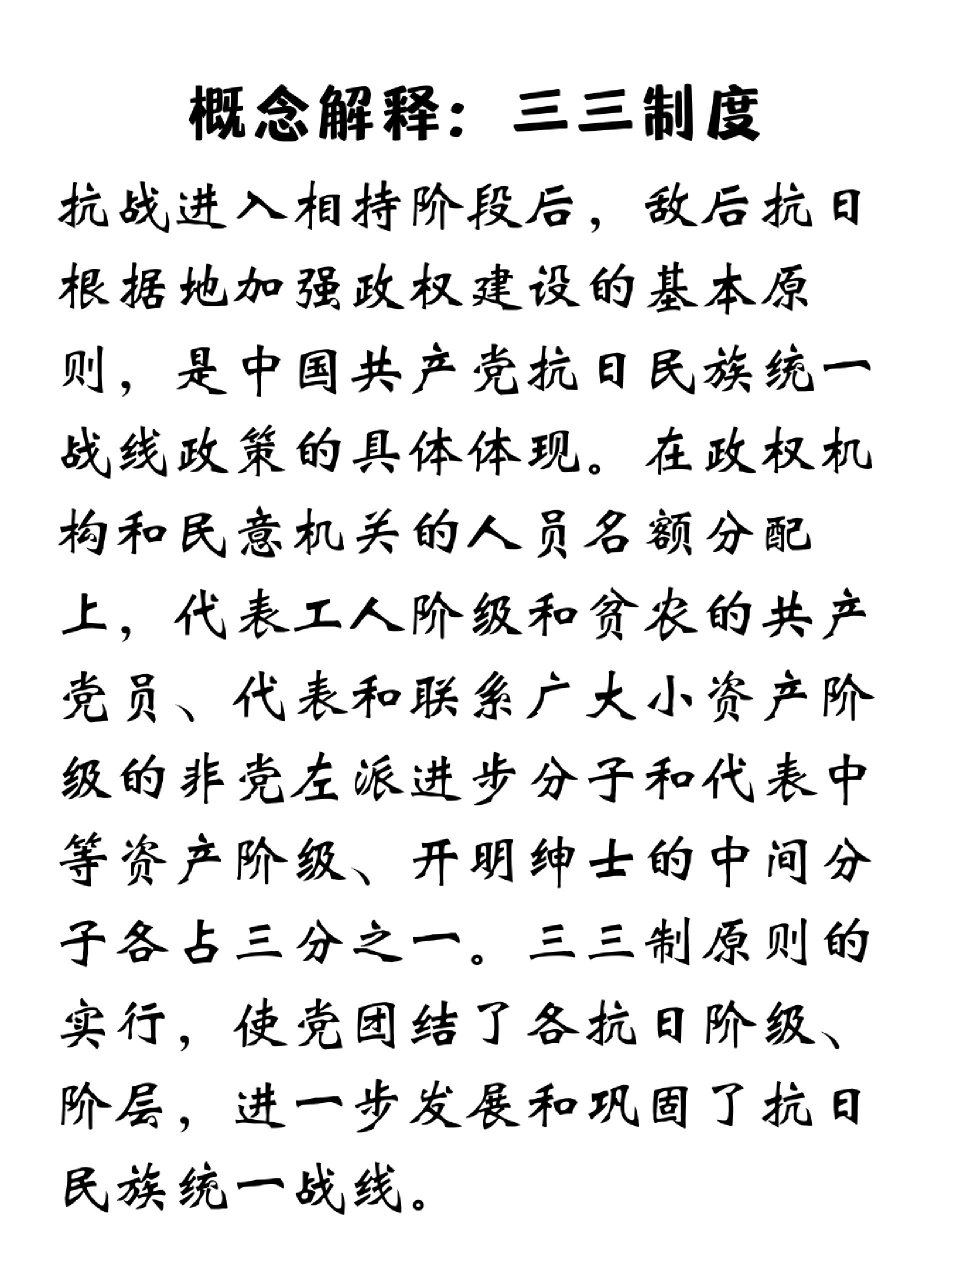 概念解释：三三制度
抗战进入相持阶段后，敌后抗日
根据地加强政权建设的基本原
则，是中国共产党抗日民族统一
战线政策的具体体现。在政权机
构和民意机关的人员名额分配
上，代表工人阶级和贫农的共产
党员、代表和联系广大小资产阶
级的非党左派进步分子和代表中
等资产阶级、开明绅士的中间分
子各占三分之一。三三制原则的
实行，使党团结了各抗日阶级、
阶层，进一步发展和巩固了抗日
民族统一战线。